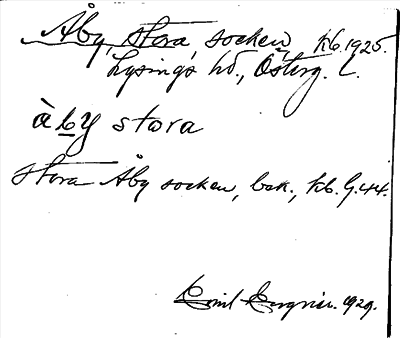 Åby, stora, socken, Kb. 1925.
Lysings hd., Österg. L.
àby stora
Stora Åby socken, bek., Kb. G. 44.
Emil 1929.